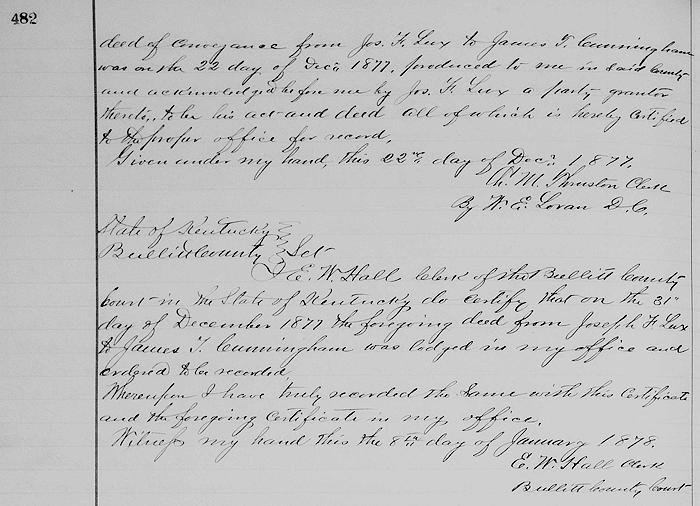 482
deed of conveyance from Jos. F. Lux to James T. Cunningham
was on the 22 day of Decr. 1877. produced to me in said County
and acknowledged before me by Jos. F. Lux a party grantor
thereto, to be his act and deed all of which is hereby certified
to the proper office for record.
Given under my hand, this 22nd day of Decr. 1877.
Ch. M. Thruston Clerk
By W. E. Loran D.C.
State of Kentucky
Bullitt County Sct
I E. W. Hall Clerk of the Bullitt County
Court in the State of Kentucky do certify that on the 31"
day of December 1877 the foregoing deed from Joseph F Lux
to James T. Cunningham was lodged in my office and
ordered to be recorded
Whereupon I have truly recorded the same with this certificate
and the foregoing certificate in my office.
Witness my hand this the 8th day of January 1878.
E. W. Hall Clerk
Bullitt County Court